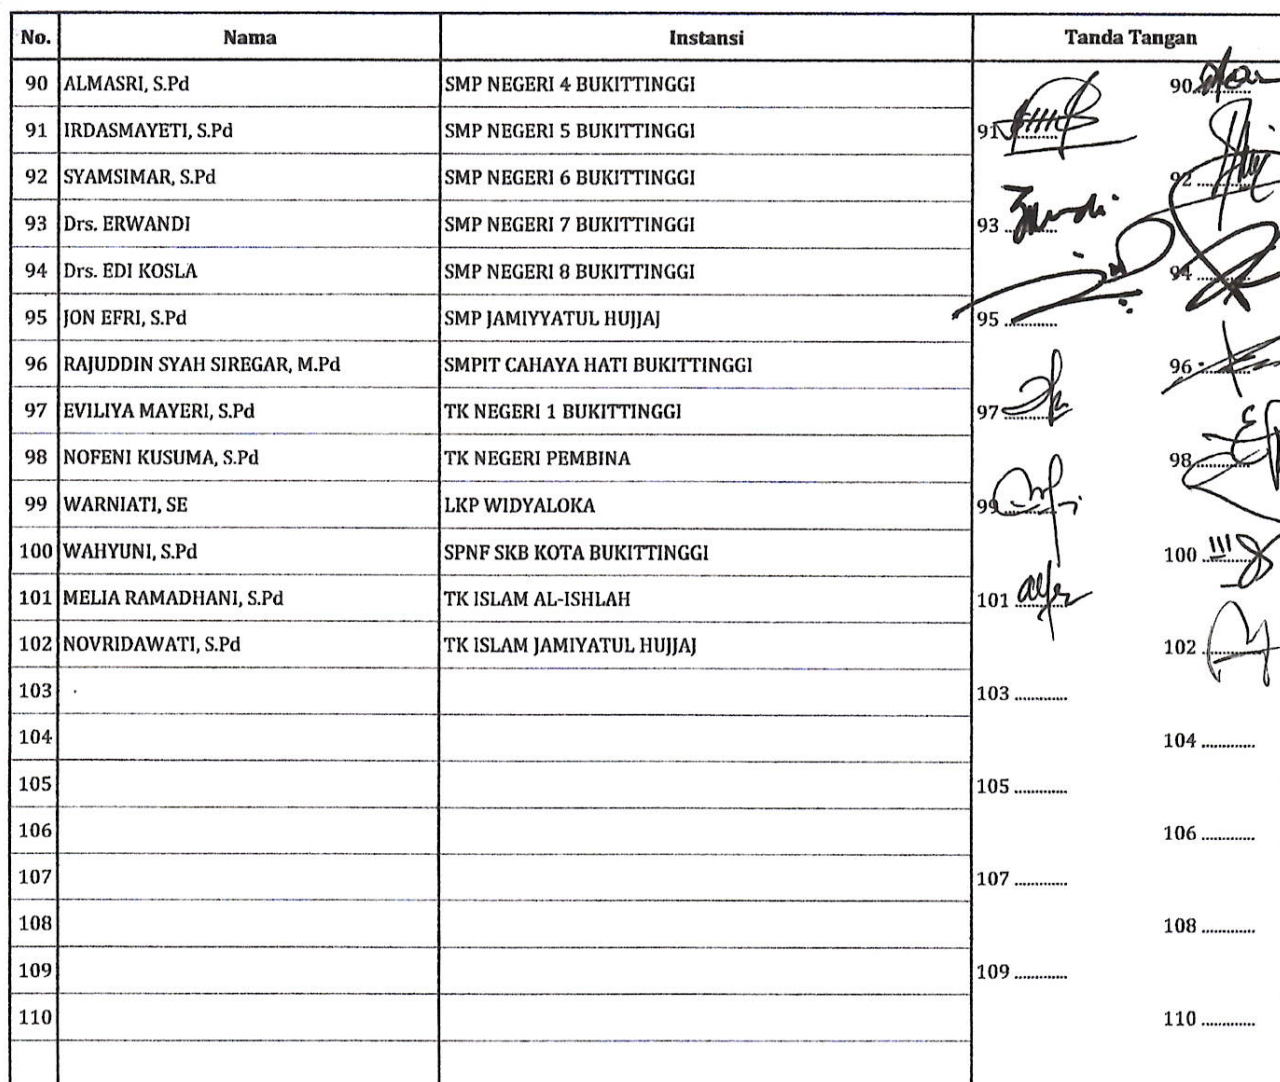 No. Nama Instansi Tanda Tangan
90 ALMASRI, S.Pd SMP NEGERI 4 BUKITTINGGI 90............
91 IRDASMAYETI, S.Pd SMP NEGERI 5 BUKITTINGGI 91............
92 SYAMSIMAR, S.Pd SMP NEGERI 6 BUKITTINGGI 92............
93 Drs. ERWANDI SMP NEGERI 7 BUKITTINGGI 93............
94 Drs. EDI KOSLA SMP NEGERI 8 BUKITTINGGI 94............
95 JON EFRI, S.Pd SMP JAMIYYATUL HUJJAJ 95............
96 RAJUDDIN SYAH SIREGAR, M.Pd SMPIT CAHAYA HATI BUKITTINGGI 96............
97 EVILIYA MAYERI, S.Pd TK NEGERI 1 BUKITTINGGI 97............
98 NOFENI KUSUMA, S.Pd TK NEGERI PEMBINA 98............
99 WARNIATI, SE LKP WIDYALOKA 99............
100 WAHYUNI, S.Pd SPNF SKB KOTA BUKITTINGGI 100............
101 MELIA RAMADHANI, S.Pd TK ISLAM AL-ISHLAH 101............
102 NOVRIDAWATI, S.Pd TK ISLAM JAMIYATUL HUJJAJ 102............
103 103............
104 104............
105 105............
106 106............
107 107............
108 108............
109 109............
110 110............